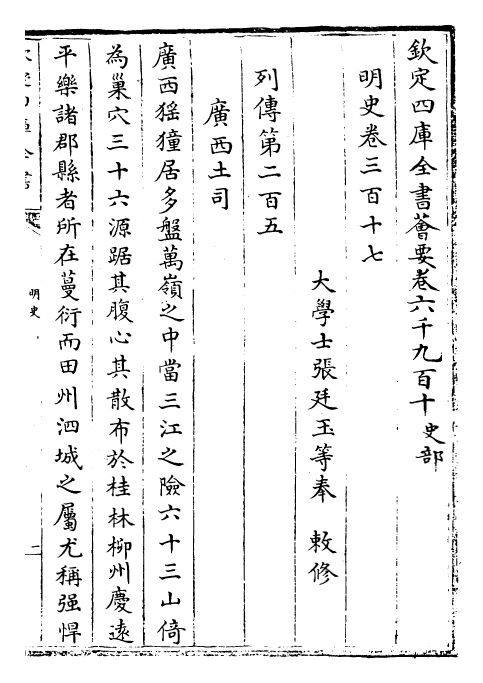 欽定四庫全書薈要卷六千九百十史部
明史卷三百十七
大學士張廷玉等奉 敕修
列傳第二百五
廣西土司
廣西猺獞居多盤萬嶺之中當三江之險六十三山倚
為巢穴三十六源踞其腹心其散布於桂林柳州慶遠
平樂諸郡縣者所在蔓衍而田州泗城之屬尤稱强悍
明史